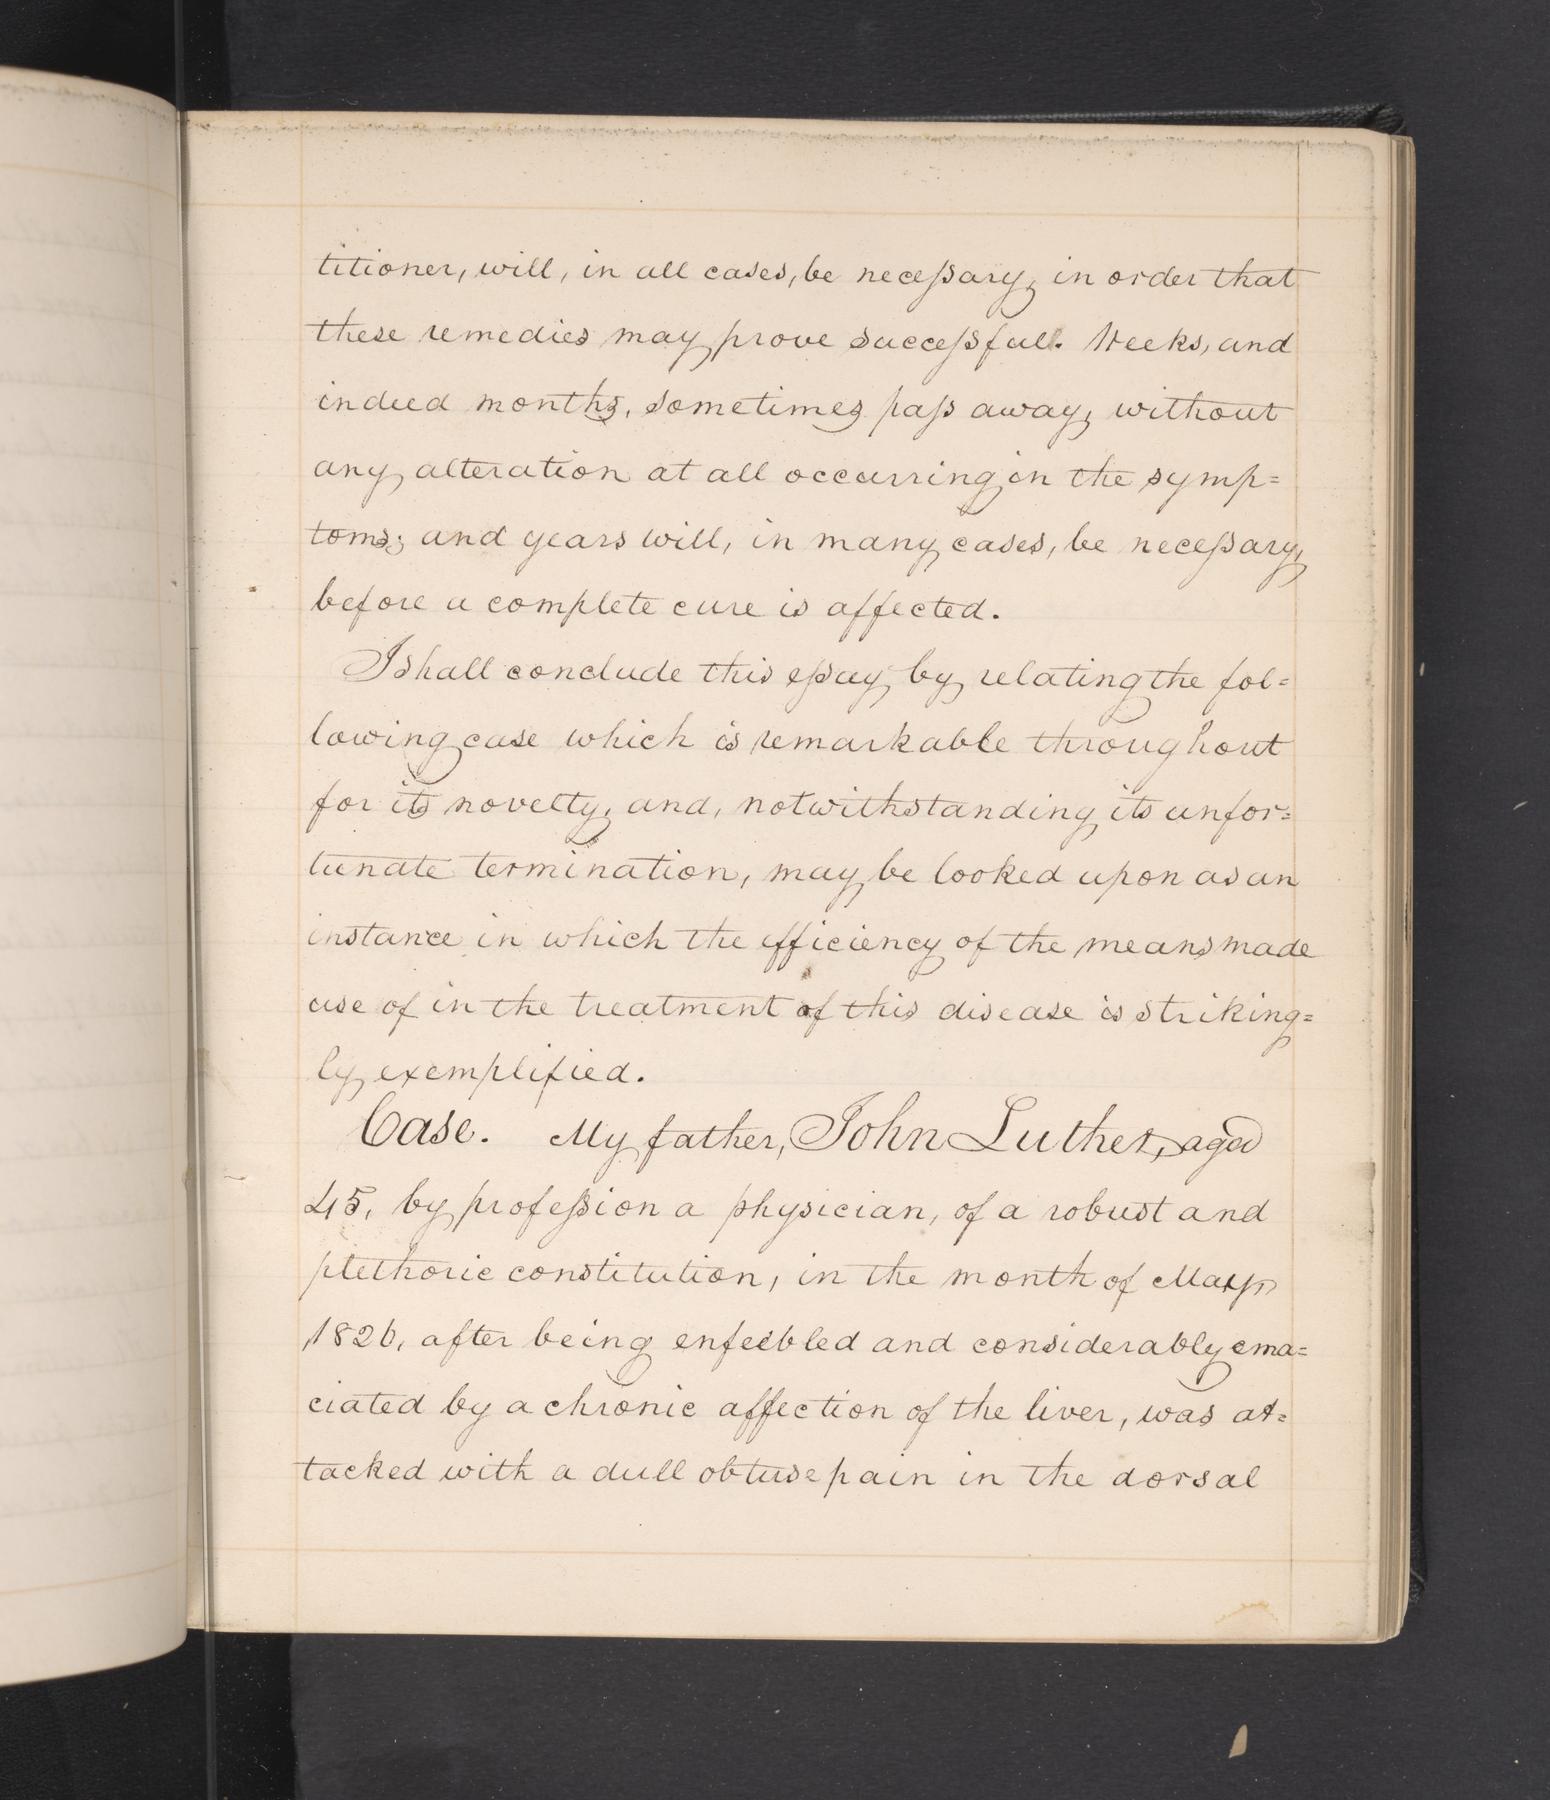 titioner, will, in all cases, be neceſsary, in order that
these remedies may prove succeſsfull. Weeks, and
indeed months, sometimes paſs away, without
any alteration at all occurring in the symp=
toms; and years will, in many cases, be neceſsary,
before a complete cure is affected.
I shall conclude this eſsay, by relating the fol=
lowing case which is remarkable throughout
for its novelty, and, notwithstanding its unfor=
tunate termination, may be looked upon as an
instance in which the efficiency of the means made
use of in the treatment of this disease is striking=
ly exemplified.
Case. My father, John Luther, aged
45, by profeſsion a physician, of a robust and
plethoric constitution, in the month of May,
1826, after being enfeebled and considerably ema=
ciated by a chronic affection of the liver, was at=
tacked with a dull obtuse pain in the dorsal